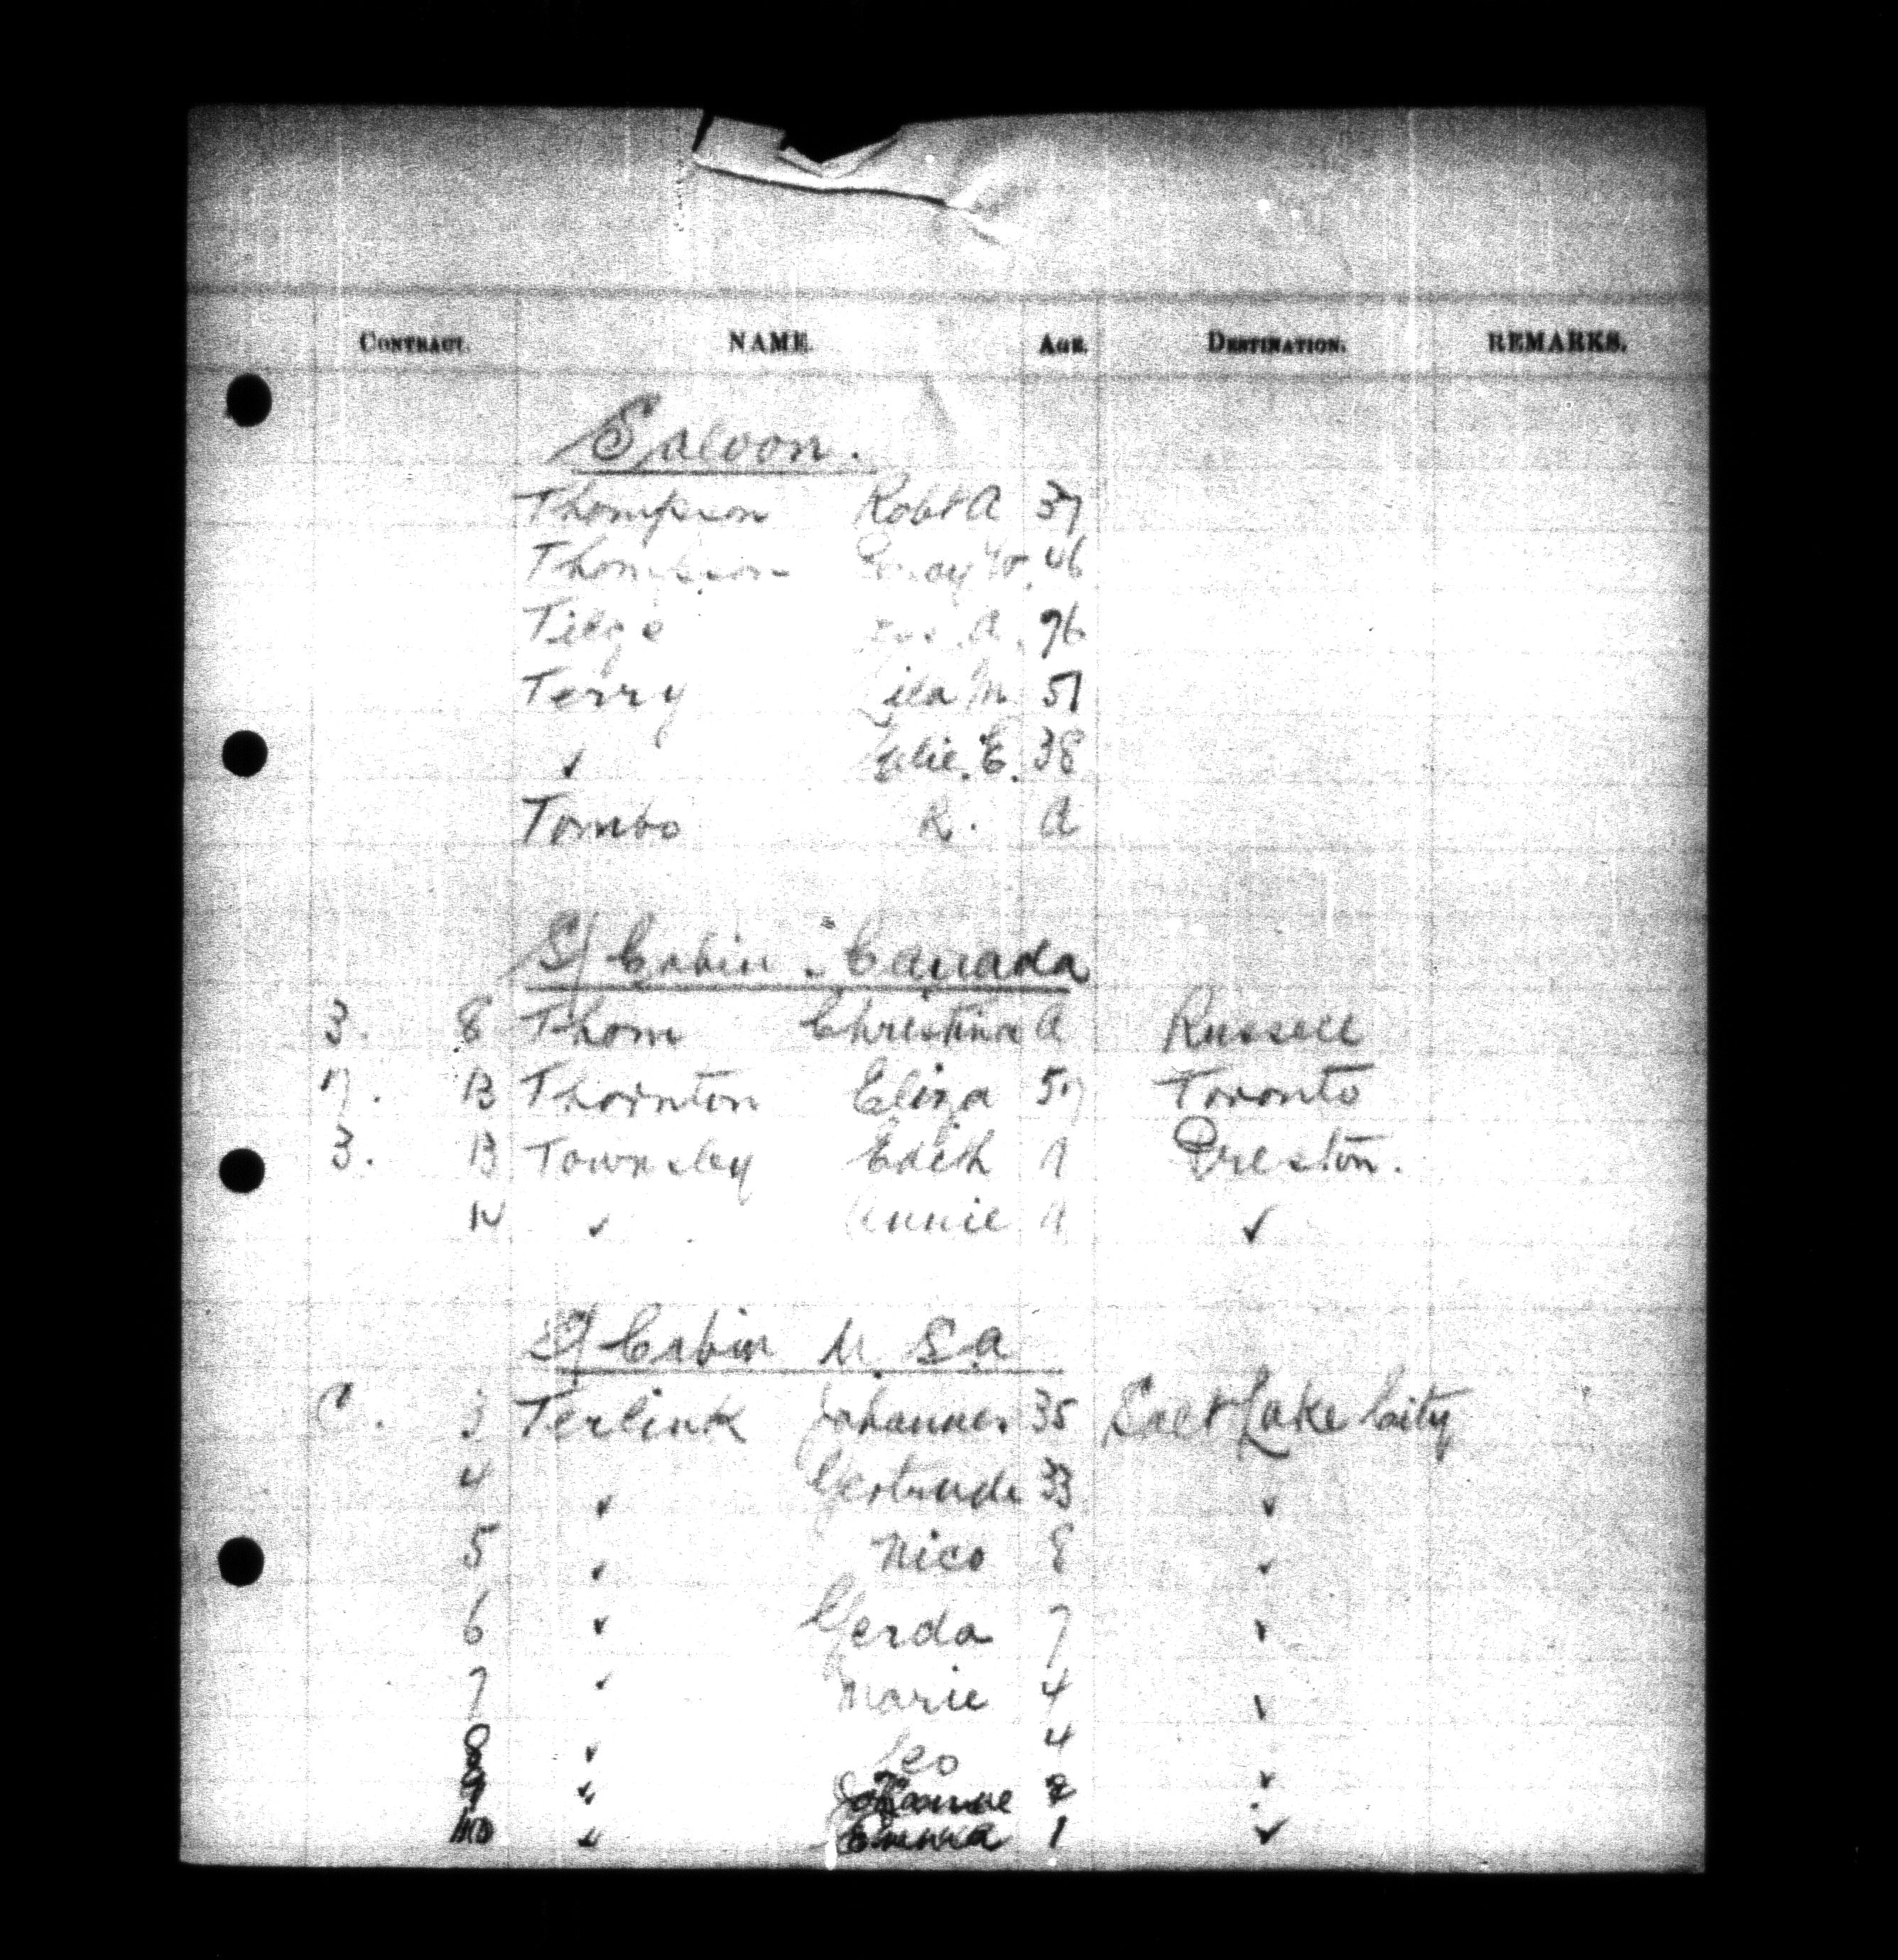 CONTRACT. NAME. AGE. DESTINATION. REMARKS.
Saloon.
Thompson Robt A 37
Thompson 46
A. 76
Terry Lila M 51
✓ E. 38
Tombo R. A
S/ Cabin Canada
3. 8 Thom Christina A Russell
17. 13 Thornton Eliza 57 Toronto
3. 13 Townsley Edith A Preston.
14 ✓ Annie A ✓
S/ Cabin U.S.A
C. 3 Terlink Johannes 35 Salt Lake City
4 ✓ Gertrude 33 ✓
5 ✓ Nico 8 ✓
6 ✓ Gerda 7 ✓
7 ✓ Marie 4 ✓
8 ✓ Leo 4
9 ✓ Johanna 2 ✓
10 ✓ Emma 1 ✓